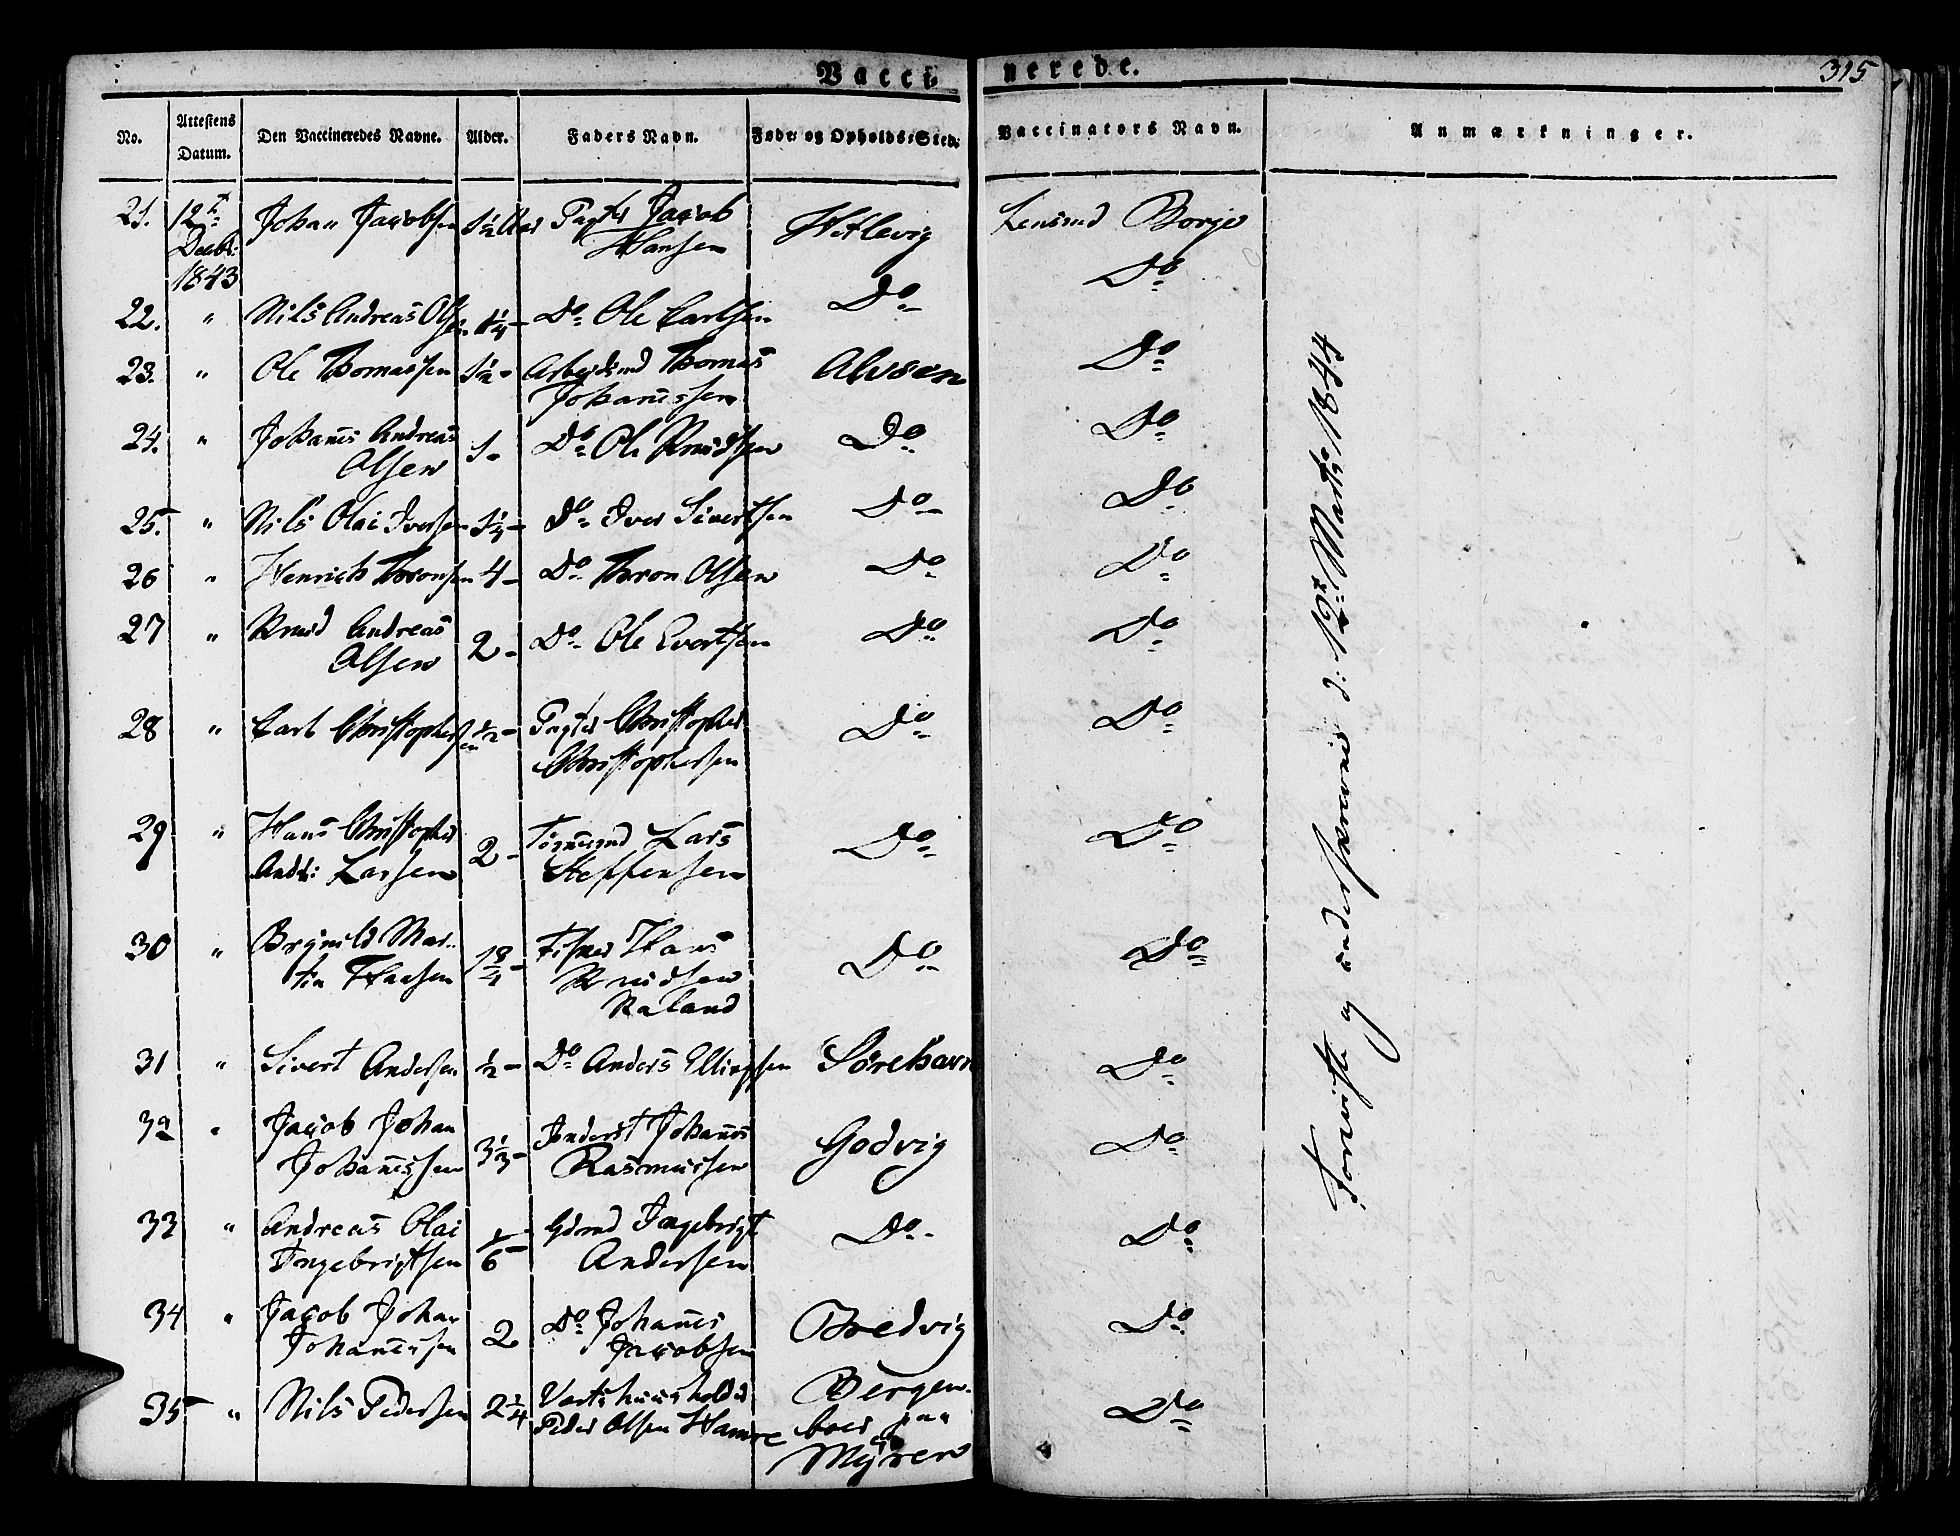 Vaccinerede.
315
No. Attestens Datum. Den Vaccineredes Navne. Alder. Faders Navn. Føde- og Opholds-Sted. Vaccinators Navn. Anmærkninger.
21. 12t Johan Jacobsen 1½ Aar Jacob Lensmd Borge
Decbr: Hansen
1843
22. " Nils Andreas Olsen 1¼ - Do Ole Carlsen Do Do
23. " Ole Thomassen 1½ - Arbeidsmd Thomas Alvøen Do
Johannessen
24. " Johannes Andreas 1 - Do Ole Knudsen Do Do
Olsen
25. " Nils Olai Iversen 1¼ - Do Iver Sivertsen Do Do
26 " Henrich Thronsen 4 - Do Thron Olsen Do Do
27 " Knud Andreas 2 - Do Ole Evertsen Do Do
Olsen
28 " Carl Christophersen ½ - Christopher Do Do
Christophersen
29 " Hans Christopher 2 - Lars Do Do
Andr: Larsen Steffensen
30 " Brynild Mar- Fisker Hans Do Do
tin Hansen Knudsen
Raland
31 " Sivert Andersen ½ - Do Anders Ellingsen Sørehavn Do
32 " Jacob Johan 3⅓ - Inderst Johannes Godvig Do
Johannessen Rasmussen
33 " Andreas Olai 1/6 - Gdmd Ingebrigt Do Do
Ingebrigtsen Andersen
34 " Jacob Johan 2 Do Johannes Bredvig Do
Johannessen Jacobsen
35 " Nils Pedersen 2¼ Bergen- Do
Peder Olsen Hamre boer paa
Myren
Foreviste og undersøgt d: 12t Marts 1844